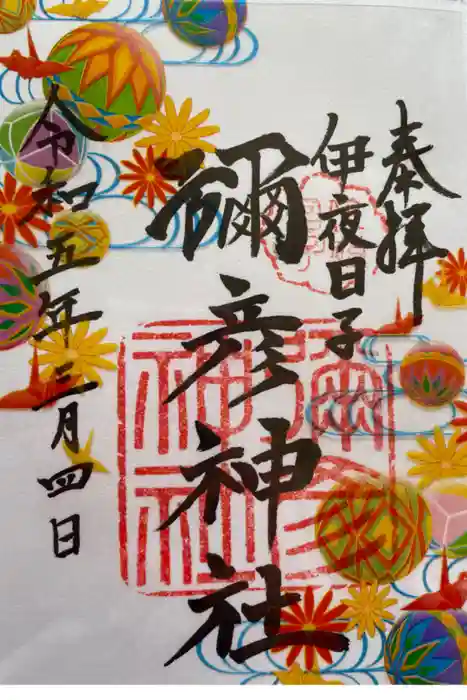 奉拝
伊夜日子
彌彦神社
令和五年三月四日